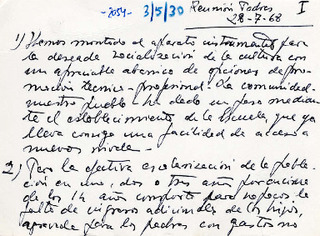 -2054- 3/5/30 Reunión Padres I
28-7-68
1) Hemos montado el aparato instrumental para
la deseada socialización de la cultura con
un apreciable abanico de opciones de pro-
moción técnico-profesional. La comunidad-
nuestro pueblo ha dado un paso median-
te el establecimiento de la Escuela, que ya
lleva consigo una facilidad de acceso a
nuevos niveles.-
2) Pero la efectiva escolarización de la pobla-
ción en uno, dos o tres años por encima
de los 14 años comporta para no pocos, la
falta de ingresos adicionales de los hijos,
para los padres con gastos no